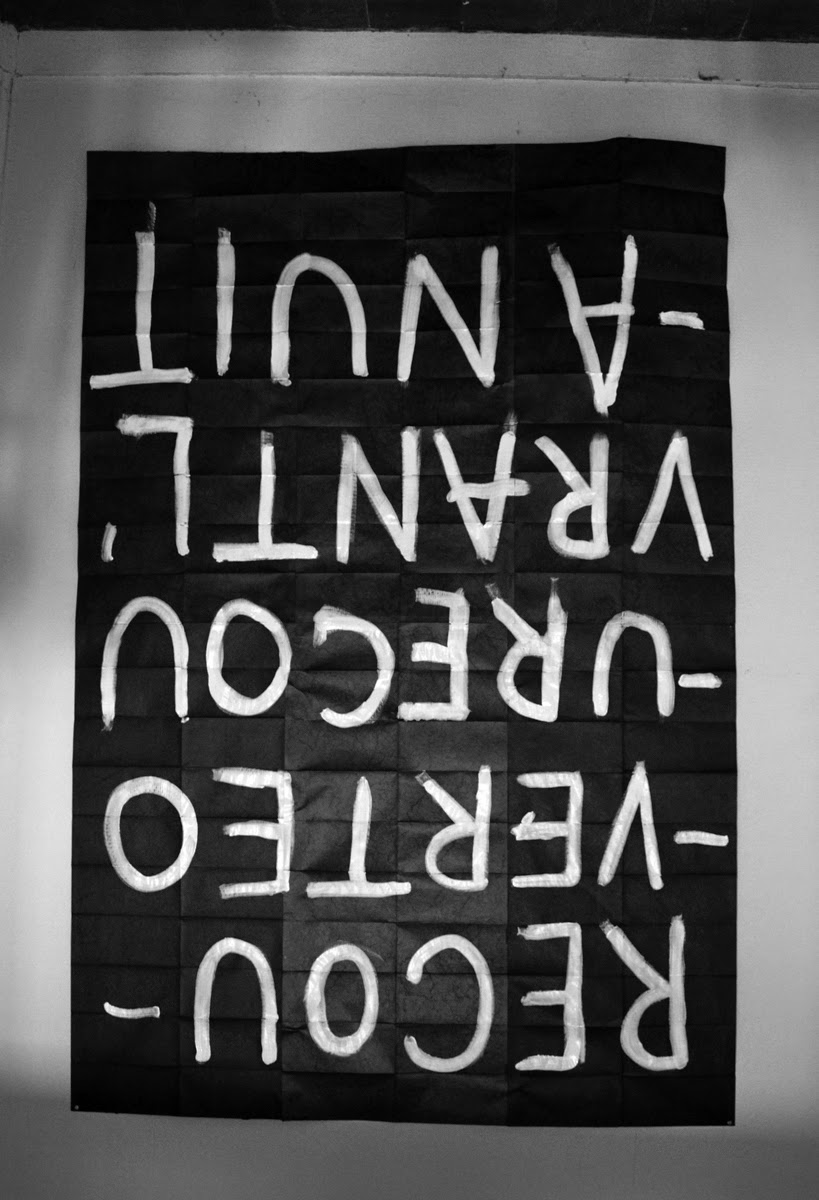 RECOU-
-VERTEO
-URECOU
VRANTL'
-ANUIT